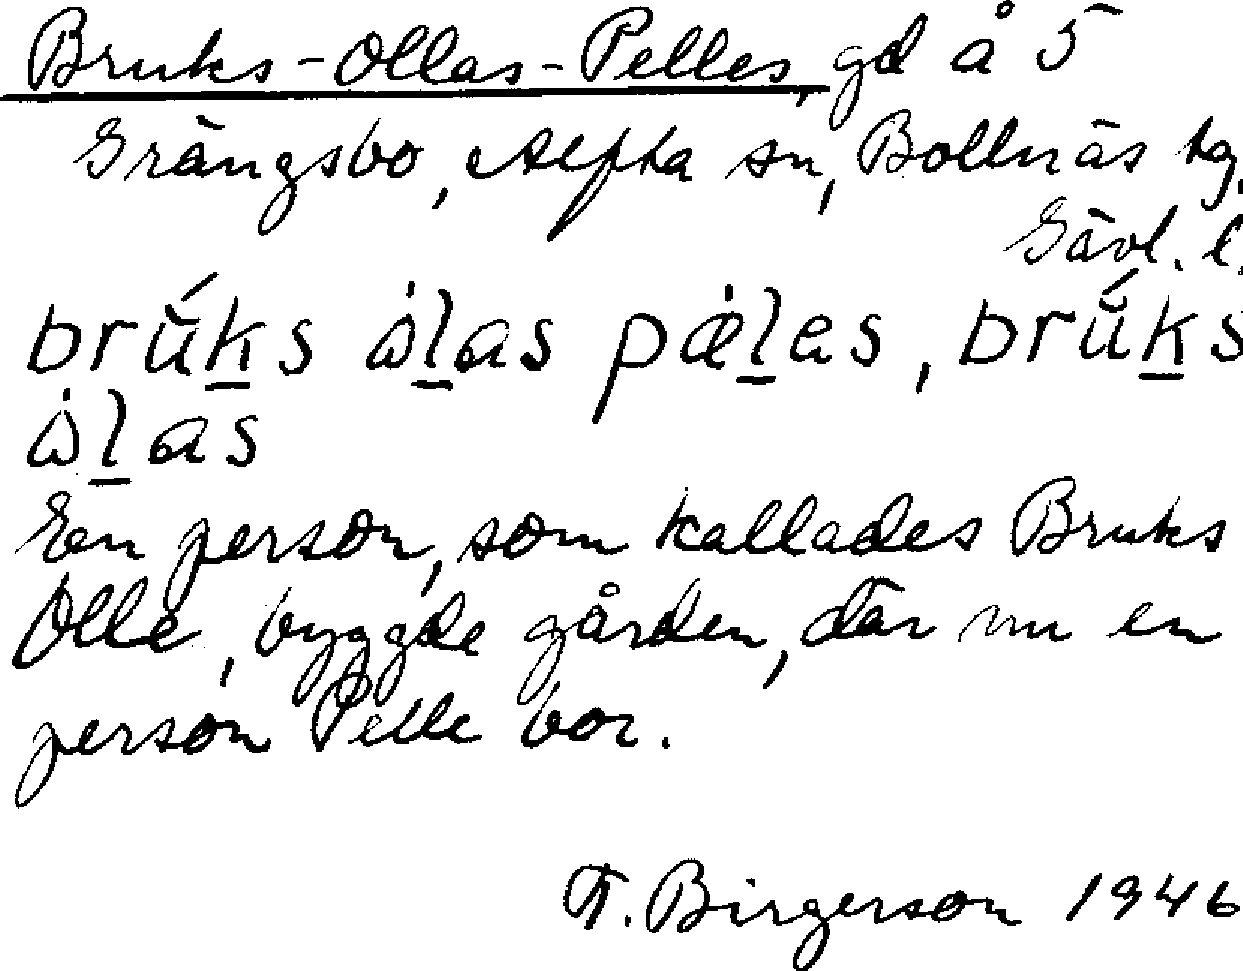 Bruks-Ollas-Pelles, gd å 5
Grängsbo, Alfta sn, Bollnäs tg,
Gävl. l.
brúks ὼlas pæ̀les, brúks
ὼlas
En person, som kallades Bruks
Olle, byggde gården, där nu en
person Pelle bor.
F. Birgerson 1946